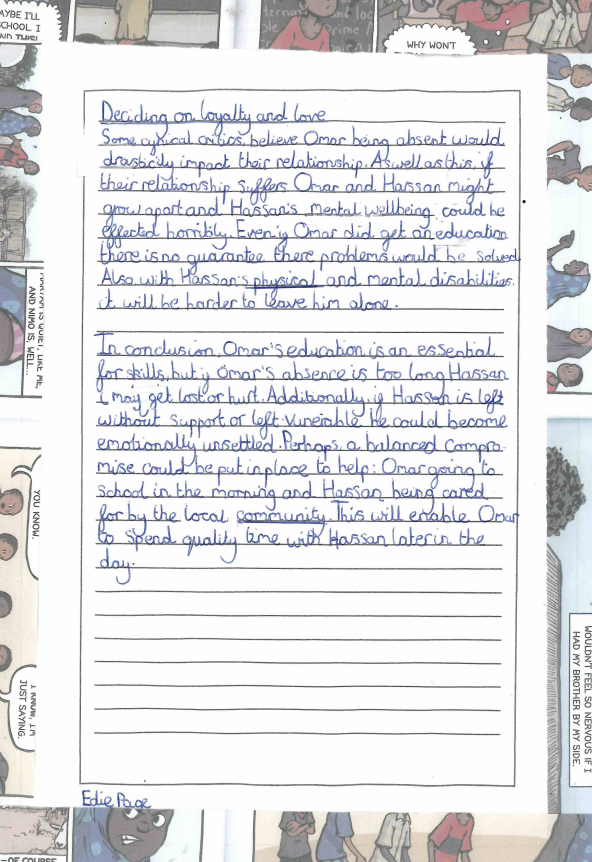 AYBE I'LL
SCHOOL I
ND THIS!
WHY WON'T
Deciding on loyalty and love
Some cynical critics, believe Omar being absent would
drasticity impact their relationship. As well as this, if
their relationship suffers Omar and Hassan might
grow apart and Hassan's mental wellbeing could be
effected horribly. Even if Omar did get an education
there is no guarantee there problems would be solved
Also with Hassan's physical and mental disabilities.
it will be harder to leave him alone.
In conclusion, Omar's education is an essential
for skills, but if Omar's absence is too long Hassan
may get lost or hurt. Additionally, if Hassan is left
without support or left vunerable he could become
emotionally unsettled. Perhaps, a balanced compro-
mise could be put in place to help: Omar going to
school in the morning and Hassan being cared
for by the local community. This will enable Omar
to spend quality time with Hassan later in the
day.
Edie Page
AND NIMO IS, WELL...
YOU KNOW.
I KNOW, I'M
JUST SAYING.
WOULDN'T FEEL SO NERVOUS IF I
HAD MY BROTHER BY MY SIDE.
-OF COURSE